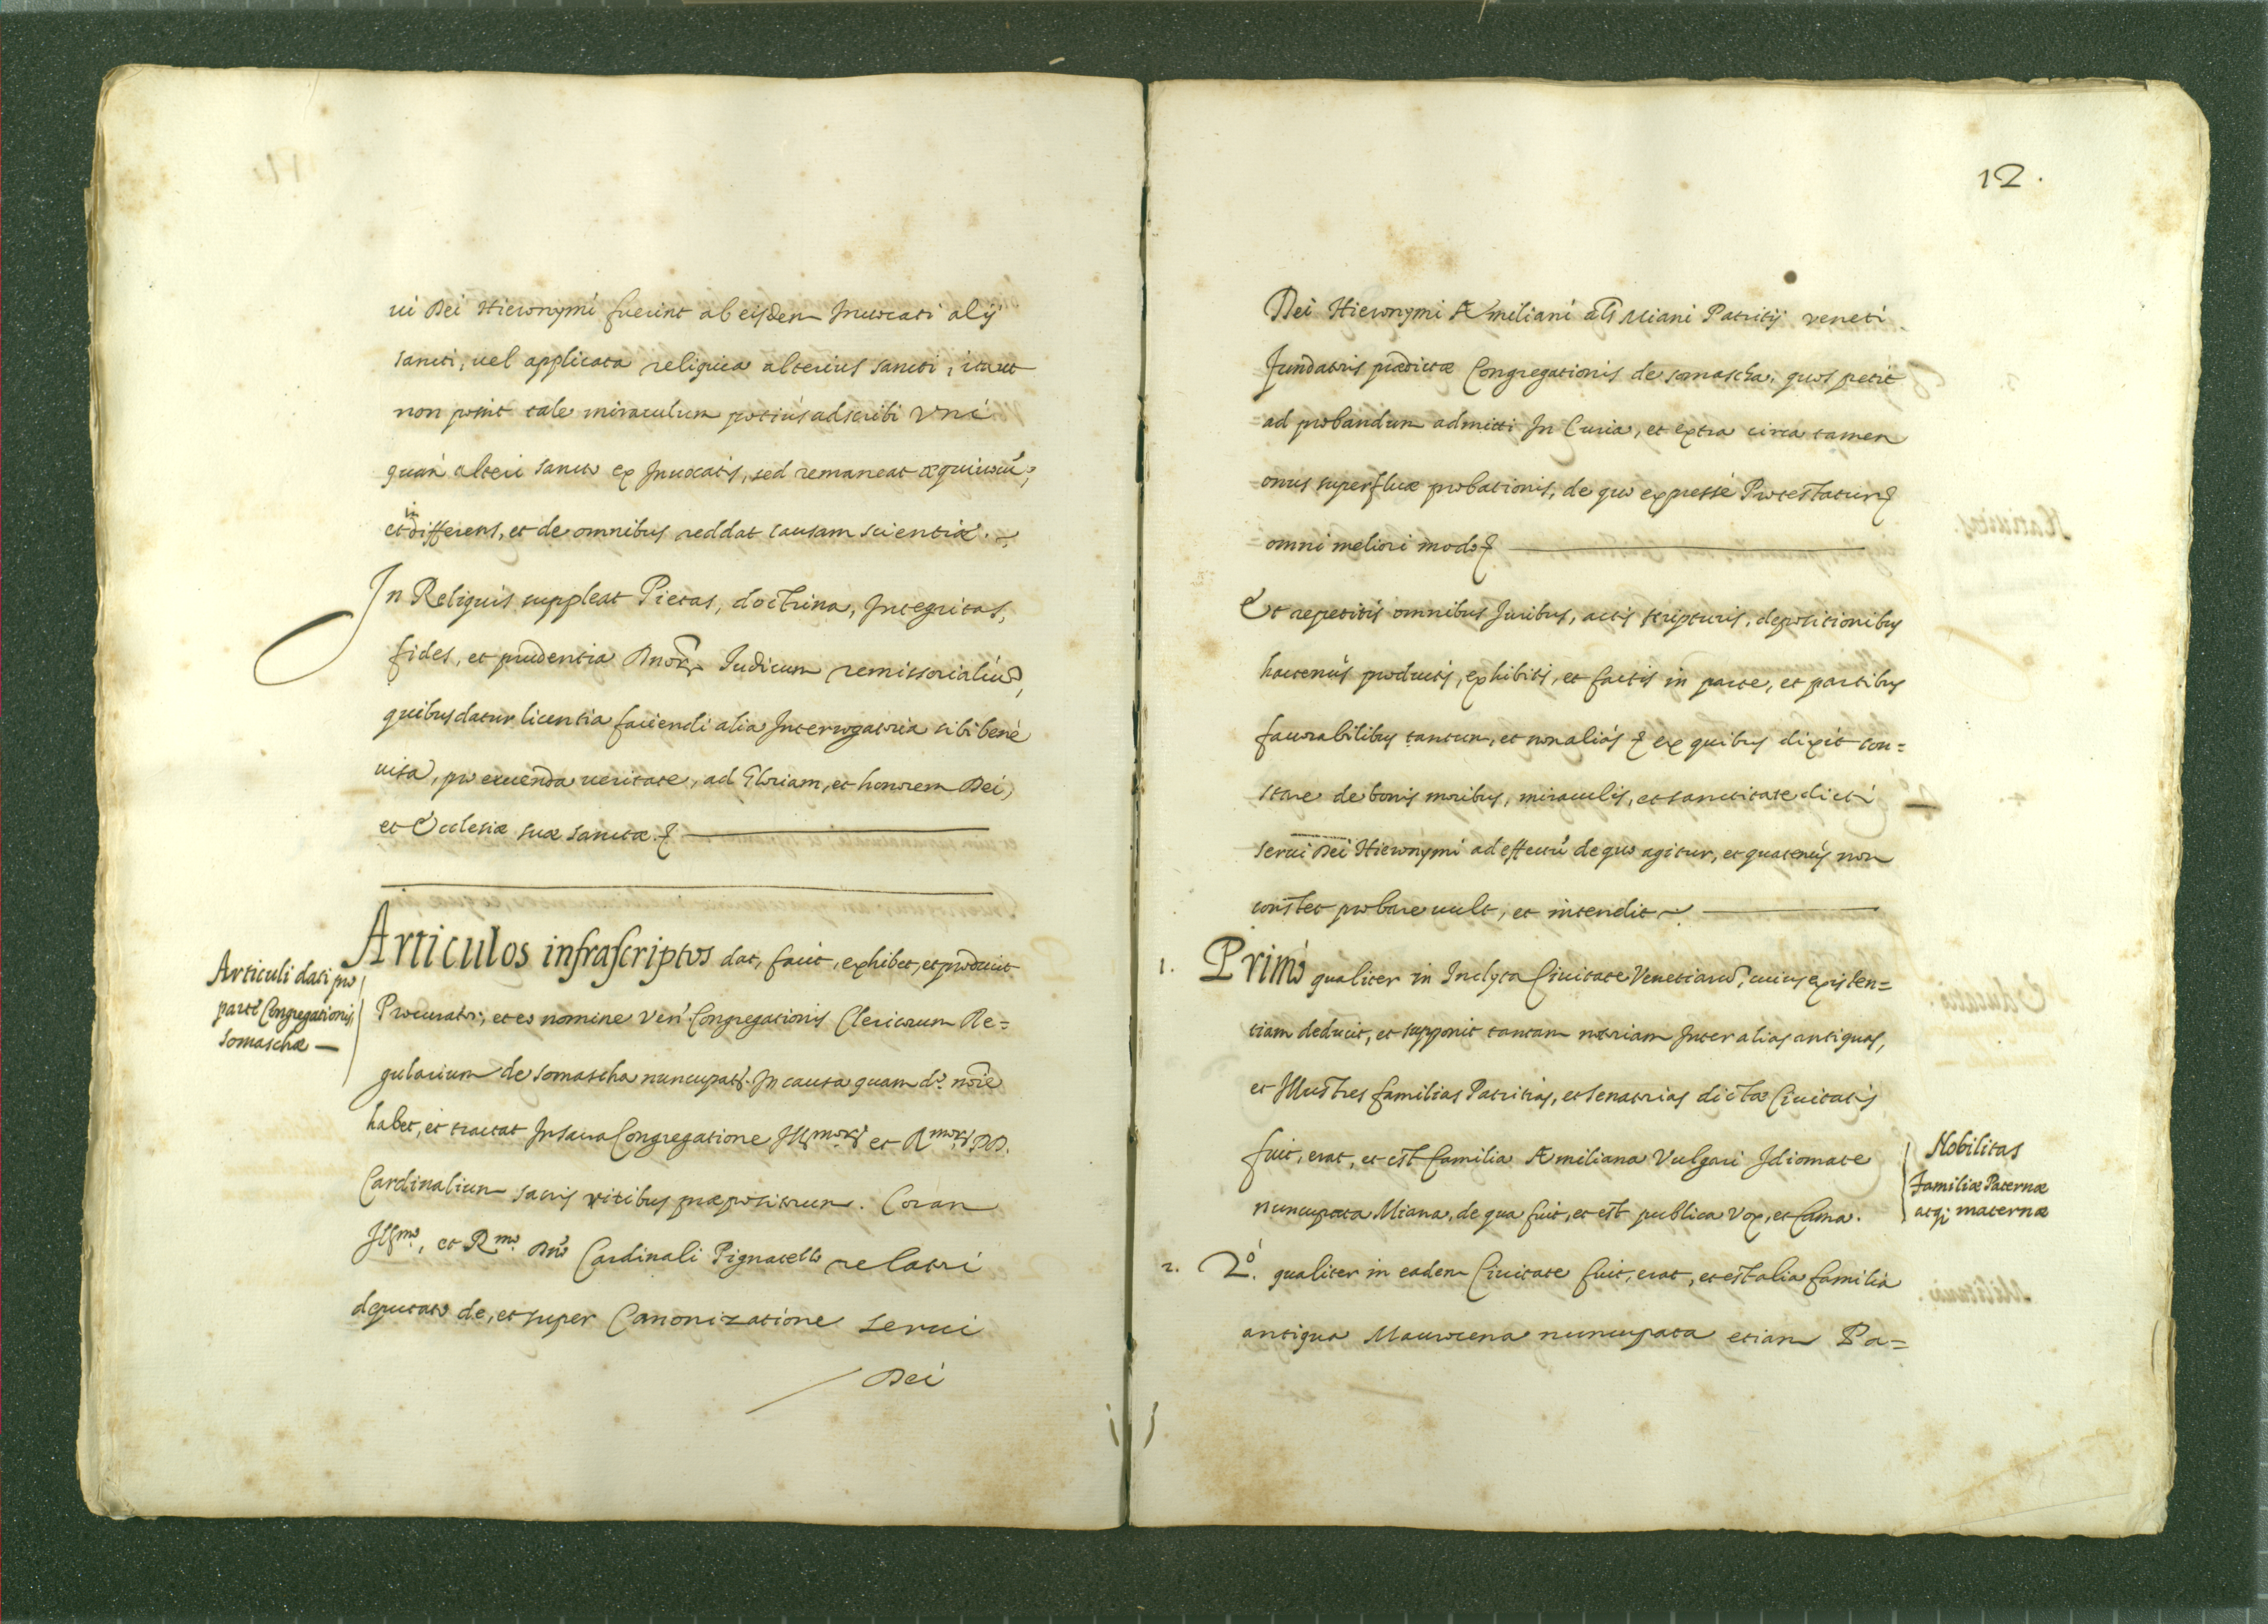 ui Dei Hieronymi fuerint ab eisdem Inuocati alij
sancti, uel applicata reliquia alterius sancti, ita ut
non possit tale miraculum potius adscribi vni
quàm alteri sancto ex Inuocatis, sed remaneat æquiuocũ,
et indifferens, et de omnibus reddat causam scientiæ.
In Reliquis suppleat Pietas, doctrina, Integritas,
fides, et prudentia Dnorũ Iudicum remissorialiũ,
quibus datur licentia faciendi alia Interrogatoria sibi benè
uisa, pro eruenda ueritate, ad Gloriam, et honorem Dei,
et Ecclesiæ suæ sanctæ. &
Articuli dati pro
parte Congregationis
Somaschæ
Articulos infrascriptos dat, facit, exhibet, et producit
Procurator, et eo nomine Ven. Congregationis Clericorum Re=
gularium de Somascha nuncupat. In causa quam do. noie
habet, et tractat In sacra Congregatione Illmorũ et Rmorũ DD.
Cardinalium sacris ritibus præpositorum. Coram
Illmo, et Rmo Dno Cardinali Pignatello relatori
deputato de, et super Canonizatione serui
Dei
12.
Dei Hieronymi Æmiliani als Miani Patritij veneti
fundatoris prædictæ Congregationis de somascha, quos petit
ad probandum admitti In Curia, et extra citra tamen
onus superfluæ probationis, de quo expressè Protestatur &
omni meliori modo &
Et repetitis omnibus Iuribus, actis scripturis, depositionibus
hactenùs productis, exhibitis, et factis in parte, et partibus
fauorabilibus tantum, et non aliàs & ex quibus dixit con=
stare de bonis moribus, miraculis, et sanctitate dicti
serui Dei Hieronymi ad effectũ de quo agitur, et quatenùs non
constet probare uult, et intendit
1. Primò qualiter in Inclyta Ciuitate Venetiarũ, cuius existen=
tiam deducit, et supponit tantam notoriam Inter alias antiquas,
et Illustres familias Patritias, et senatorias dictæ Ciuitatis
fuit, erat, et est familia Æmiliana Vulgari Idiomate
nuncupata Miana, de qua fuit, et est publica vox, et fama.
Nobilitas
familiæ Paternæ
atq; maternæ
2. 2o. qualiter in eadem Ciuitate fuit, erat, et est alia familia
antiqua Maurocena nuncupata etiam Pa=